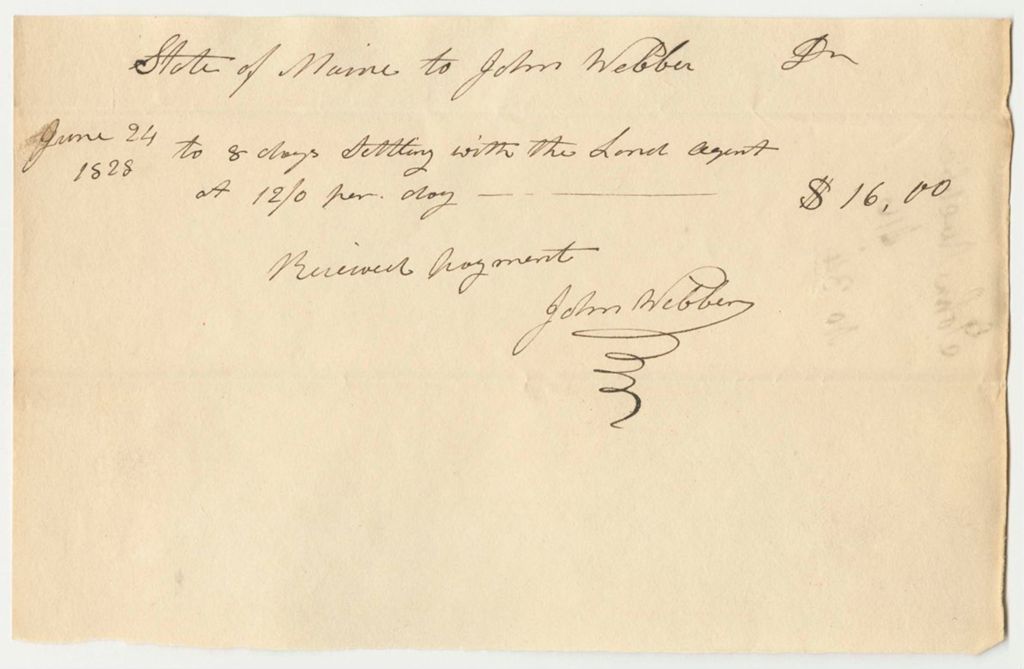 State of Maine to John Webber Dr
June 24
1828
to 8 days Settling with the Land Agent
at 12/0 per. day $ 16,00
Recieved payment
John Webber